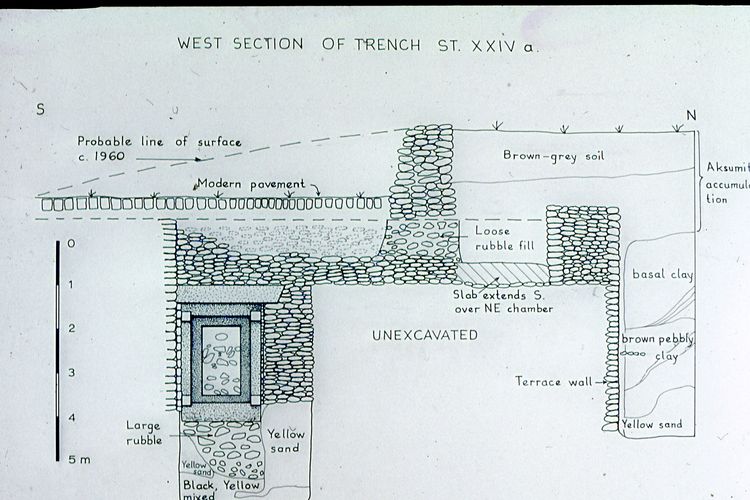 WEST SECTION OF TRENCH ST. XXIV a.
S
N
Probable line of surface
c. 1960
Modern pavement
Brown-grey soil
Aksumit
accumula
tion
Loose
rubble fill
basal clay
Slab extends S.
over NE chamber
UNEXCAVATED
brown pebbly
clay
Terrace wall
Yellow sand
0
1
2
3
4
5 m
Large
rubble
Yellow
sand
Yellow
sand
Black, Yellow
mixed